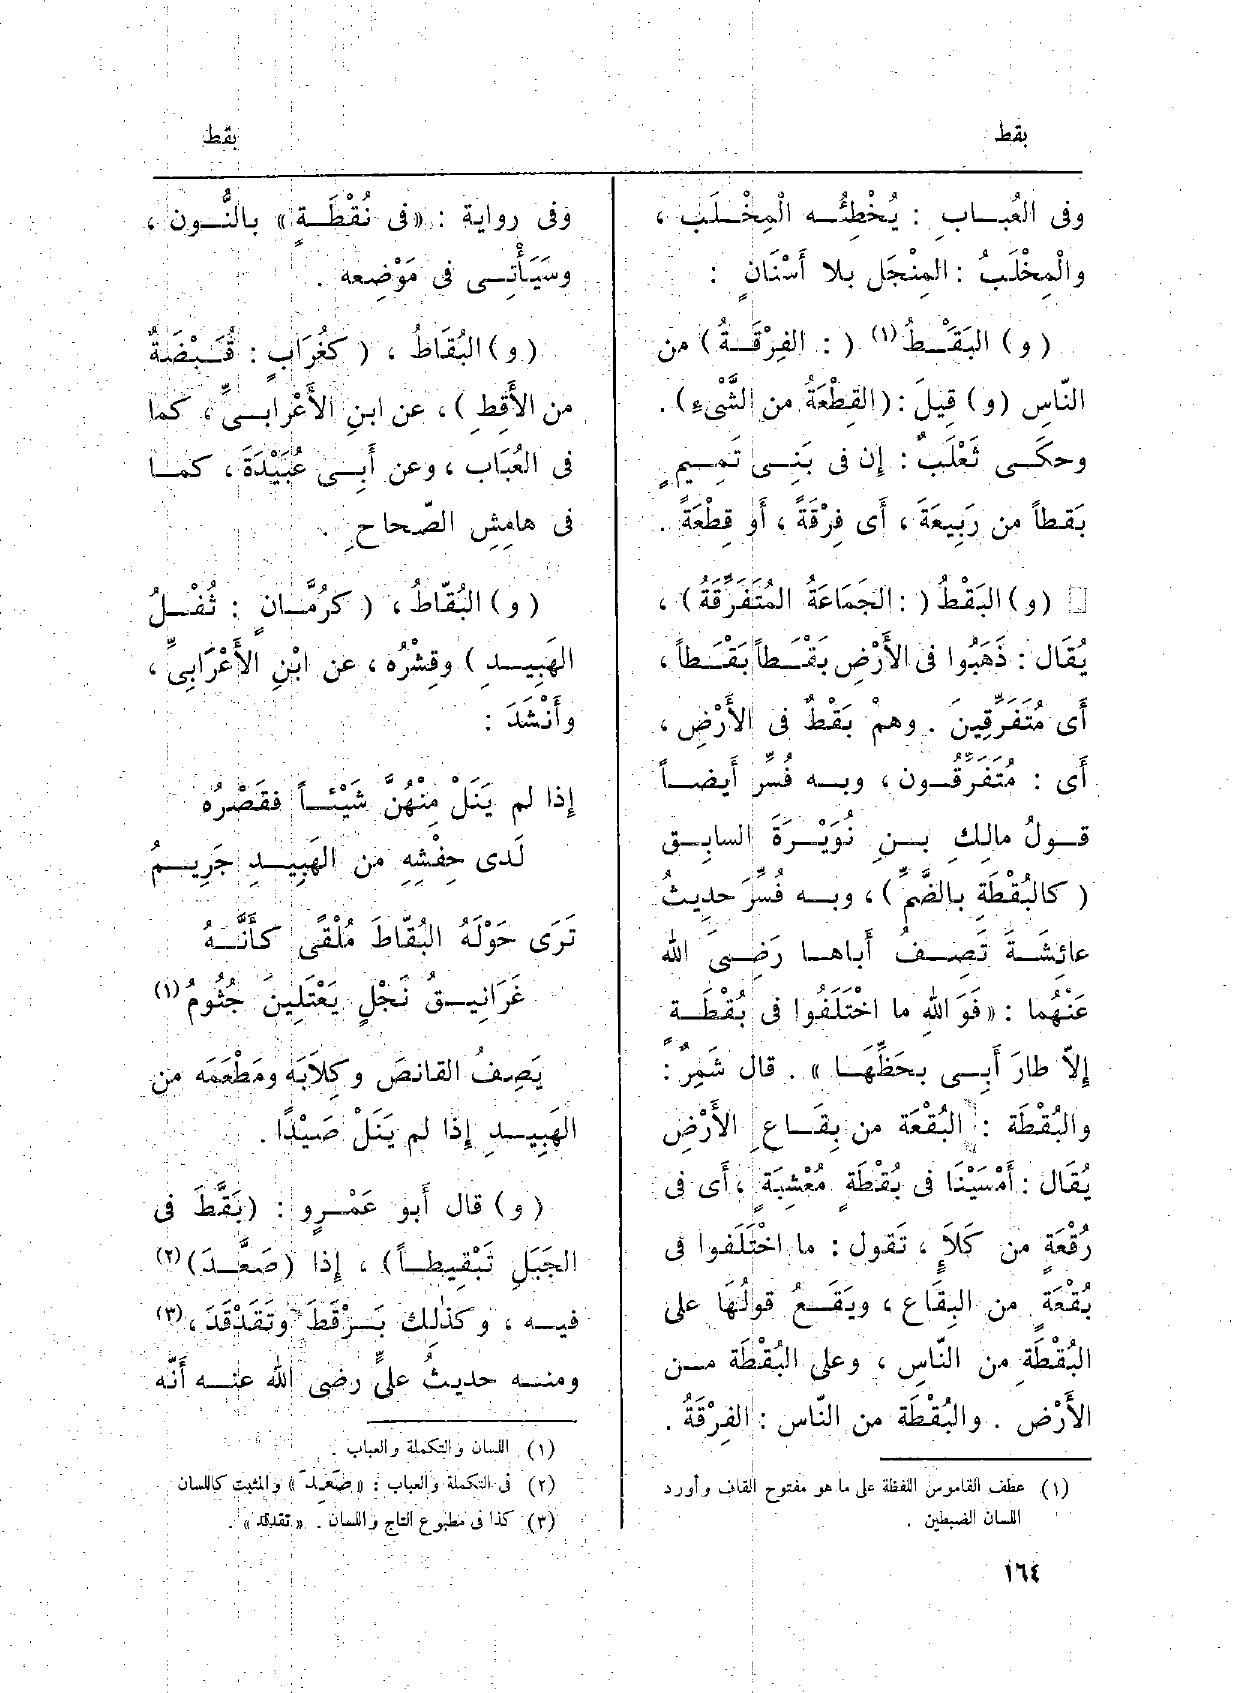 بقط
بقط
وفى العُبــابِ : يُخْطِئُــه الْمِخْــلَب ،
والْمِخْلَبُ : المِنْجَل بلا أَسْنَانٍ :
(و) البَقَــطُ(١) ( : الفِرْقَــةُ) من
النّاسِ (و) قِيلَ : (القِطْعَةُ من الشَّىْءِ) .
وحكَــى ثَعْلَبٌ : إن فى بَنِــى تَمِــيمٍ
بَقَطاً من رَبِيعَةَ ، أَى فِرْقَةً ، أَو قِطْعَةً .
(و) البَقْطُ ( : الجَمَاعَةُ المُتَفَرِّقَةُ) ،
يُقَال : ذَهَبُوا فى الأَرْضِ بَقْــطاً بَقْــطاً ،
أَى مُتَفَرِّقِينَ . وهمْ بَقْطٌ فى الأَرْضِ ،
أَى : مُتَفَرِّقُون ، وبــه فُسِّر أَيضــاً
قــولُ مالِكِ بــنِ نُوَيْــرَةَ السابِــق
( كالبُقْطَةِ بالضَّمِّ ) ، وبــه فُسِّرَ حدِيثُ
عائِشَــةَ تَصِــفُ أَباهــا رَضِــىَ اللهُ
عَنْهُما : «فَوَ اللهِ ما اخْتَلَفُوا فى بُقْطَــة
إِلاّ طارَ أَبِــى بحَظِّهــا » . قال شَمِرٌ :
والبُقْطَة : البُقْعَة من بِقَــاعِ الأَرْضِ
يُقَال : أَمْسَيْنَا فى بُقْطَةٍ مُعْشِبَةٍ ، أَى فى
رُقْعَةٍ من كَلَأٍ ، تَقول : ما اخْتَلَفوا فى
بُقْعَةٍ من البِقَاع ، ويَقَــعُ قولُهَا على
البُقْطَةِ من النّاسِ ، وعلى البُقْطَة مــن
الأَرْض . والبُقْطَة من النّاس : الفِرْقَةُ .
(١) عطف القاموس اللفظة على ما هو مفتوح القاف وأورد
اللسان الضبطين .
١٦٤
وفى رواية : «فى نُقْطَــةٍ» بالنُّــون ،
وسَيَأْتِــى فى مَوْضِعه .
(و) البُقَاطُ ، ( كغُرَابٍ : قُــبْضَةٌ
من الأَقِطِ ) ، عن ابنِ الأَعْرابــىِّ ، كما
فى العُبَاب ، وعن أَبِــى عُبَيْدَةَ ، كمــا
فى هامِشِ الصّحاحِ .
(و) البُقّاطُ ، ( كرُمَّــانٍ : ثُفْــلُ
الهَبِيــدِ ) وقِشْرُه ، عن ابْنِ الأَعْرَابِىِّ ،
وأَنْشَدَ :
إِذا لم يَنَلْ مِنْهُنَّ شَيْئــاً فقَصْرُه
لَدى حِفْشِهِ من الهَبِيــدِ جَرِيــمُ
تَرَى حَوْلَهُ البُقّاطَ مُلْقًى كأَنَّــهُ
غَرَانِيــقُ نَجْلٍ يَعْتَلِينَ جُثُومُ(١)
يَصِفُ القانصَ وكِلاَبَه ومَطْعَمَه من
الهَبِيــدِ إِذا لم يَنَلْ صَيْدًا .
(و) قال أَبو عَمْــرٍو : (بَقَّطَ فى
الجَبَلِ تَبْقِيطــاً) ، إِذا (صَعَّــدَ)(٢)
فيــه ، وكذٰلِك بَــرْقَطَ وتَقَدْقَدَ ،(٣)
ومنــه حديثُ علىٍّ رضى الله عنــه أَنَّه
(١) اللسان والتكملة والعباب .
(٢) فى التكملة والعباب : «صَعِدَ» والمثبت كاللسان
(٣) كذا فى مطبوع التاج واللسان . «تقدقد» .